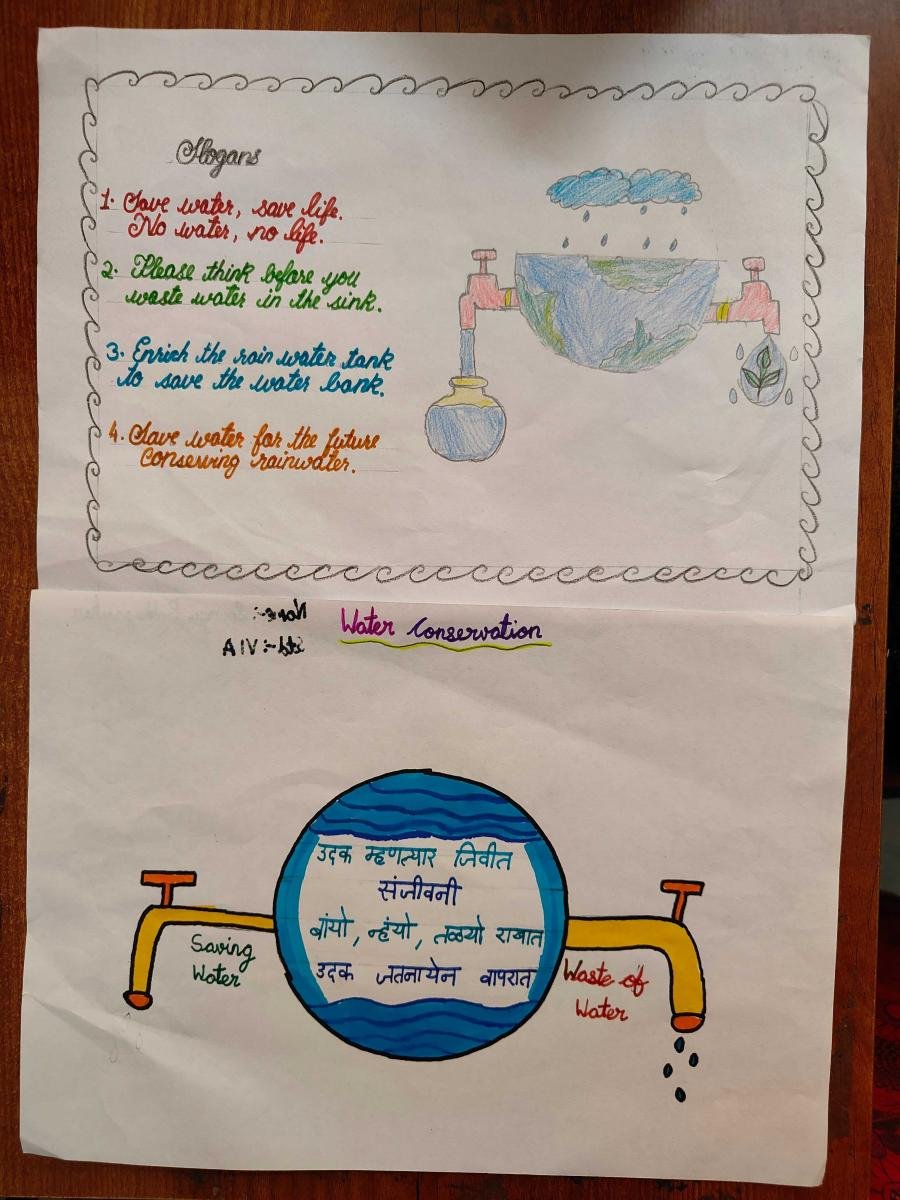 Slogans
1. Save water, save life.
No water, no life.
2. Please think before you
waste water in the sink.
3. Enrich the rain water tank
to save the water bank.
4. Save water for the future
Conserving rainwater.
Name:-
Water Conservation
Std:- VI A
उदक म्हणत्यार जिवीत
संजीवनी
बांयो, न्हंयो, तळयो राखात
उदक जतनायेन वापरात
Saving
Water
Waste of
Water